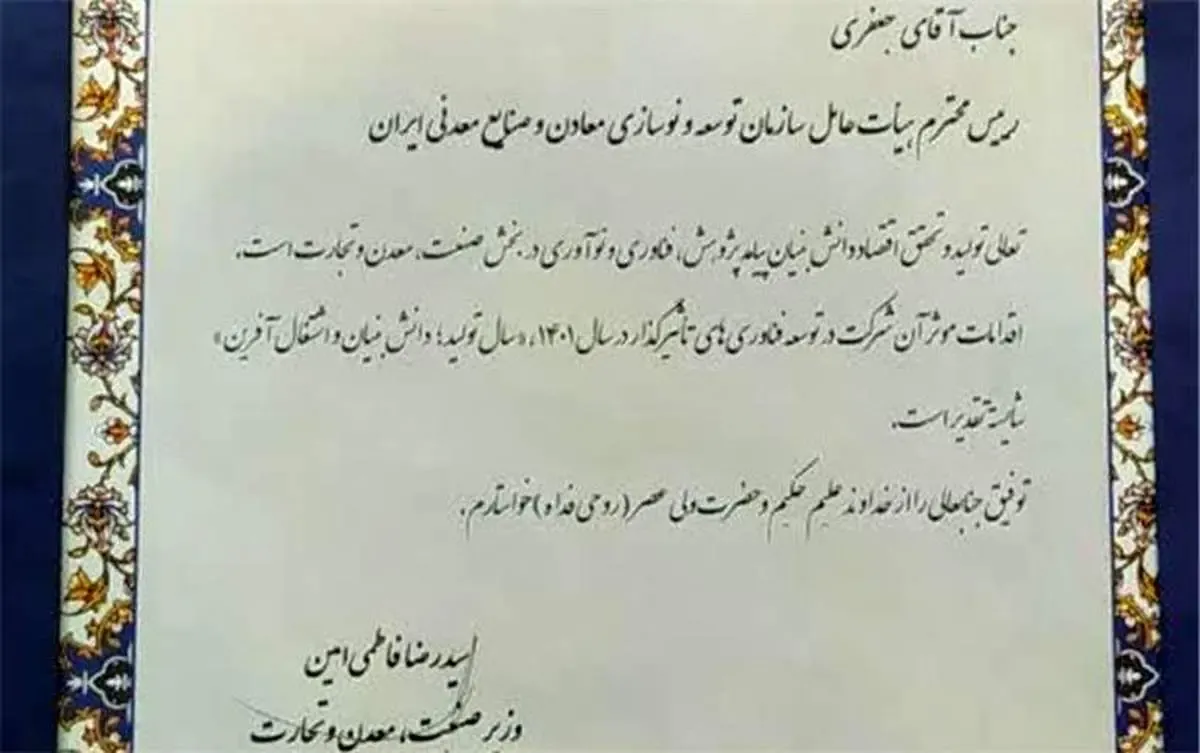 جناب آقای جعفری
رییس محترم هیأت عامل سازمان توسعه و نوسازی معادن و صنایع معدنی ایران
تعالی تولید و تحقق اقتصاد دانش بنیان پیامد پژوهش، فناوری و نوآوری در بخش صنعت، معدن و تجارت است.
اقدامات موثر آن شرکت در توسعه فناوری های تأثیرگذار در سال ۱۴۰۱، «سال تولید؛ دانش بنیان و اشتغال آفرین»
شایسته تقدیر است.
توفیق جنابعالی را از خداوند علیم حکیم و حضرت ولی عصر (روحی فداه) خواستارم.
سیدرضا فاطمی امین
وزیر صنعت، معدن و تجارت